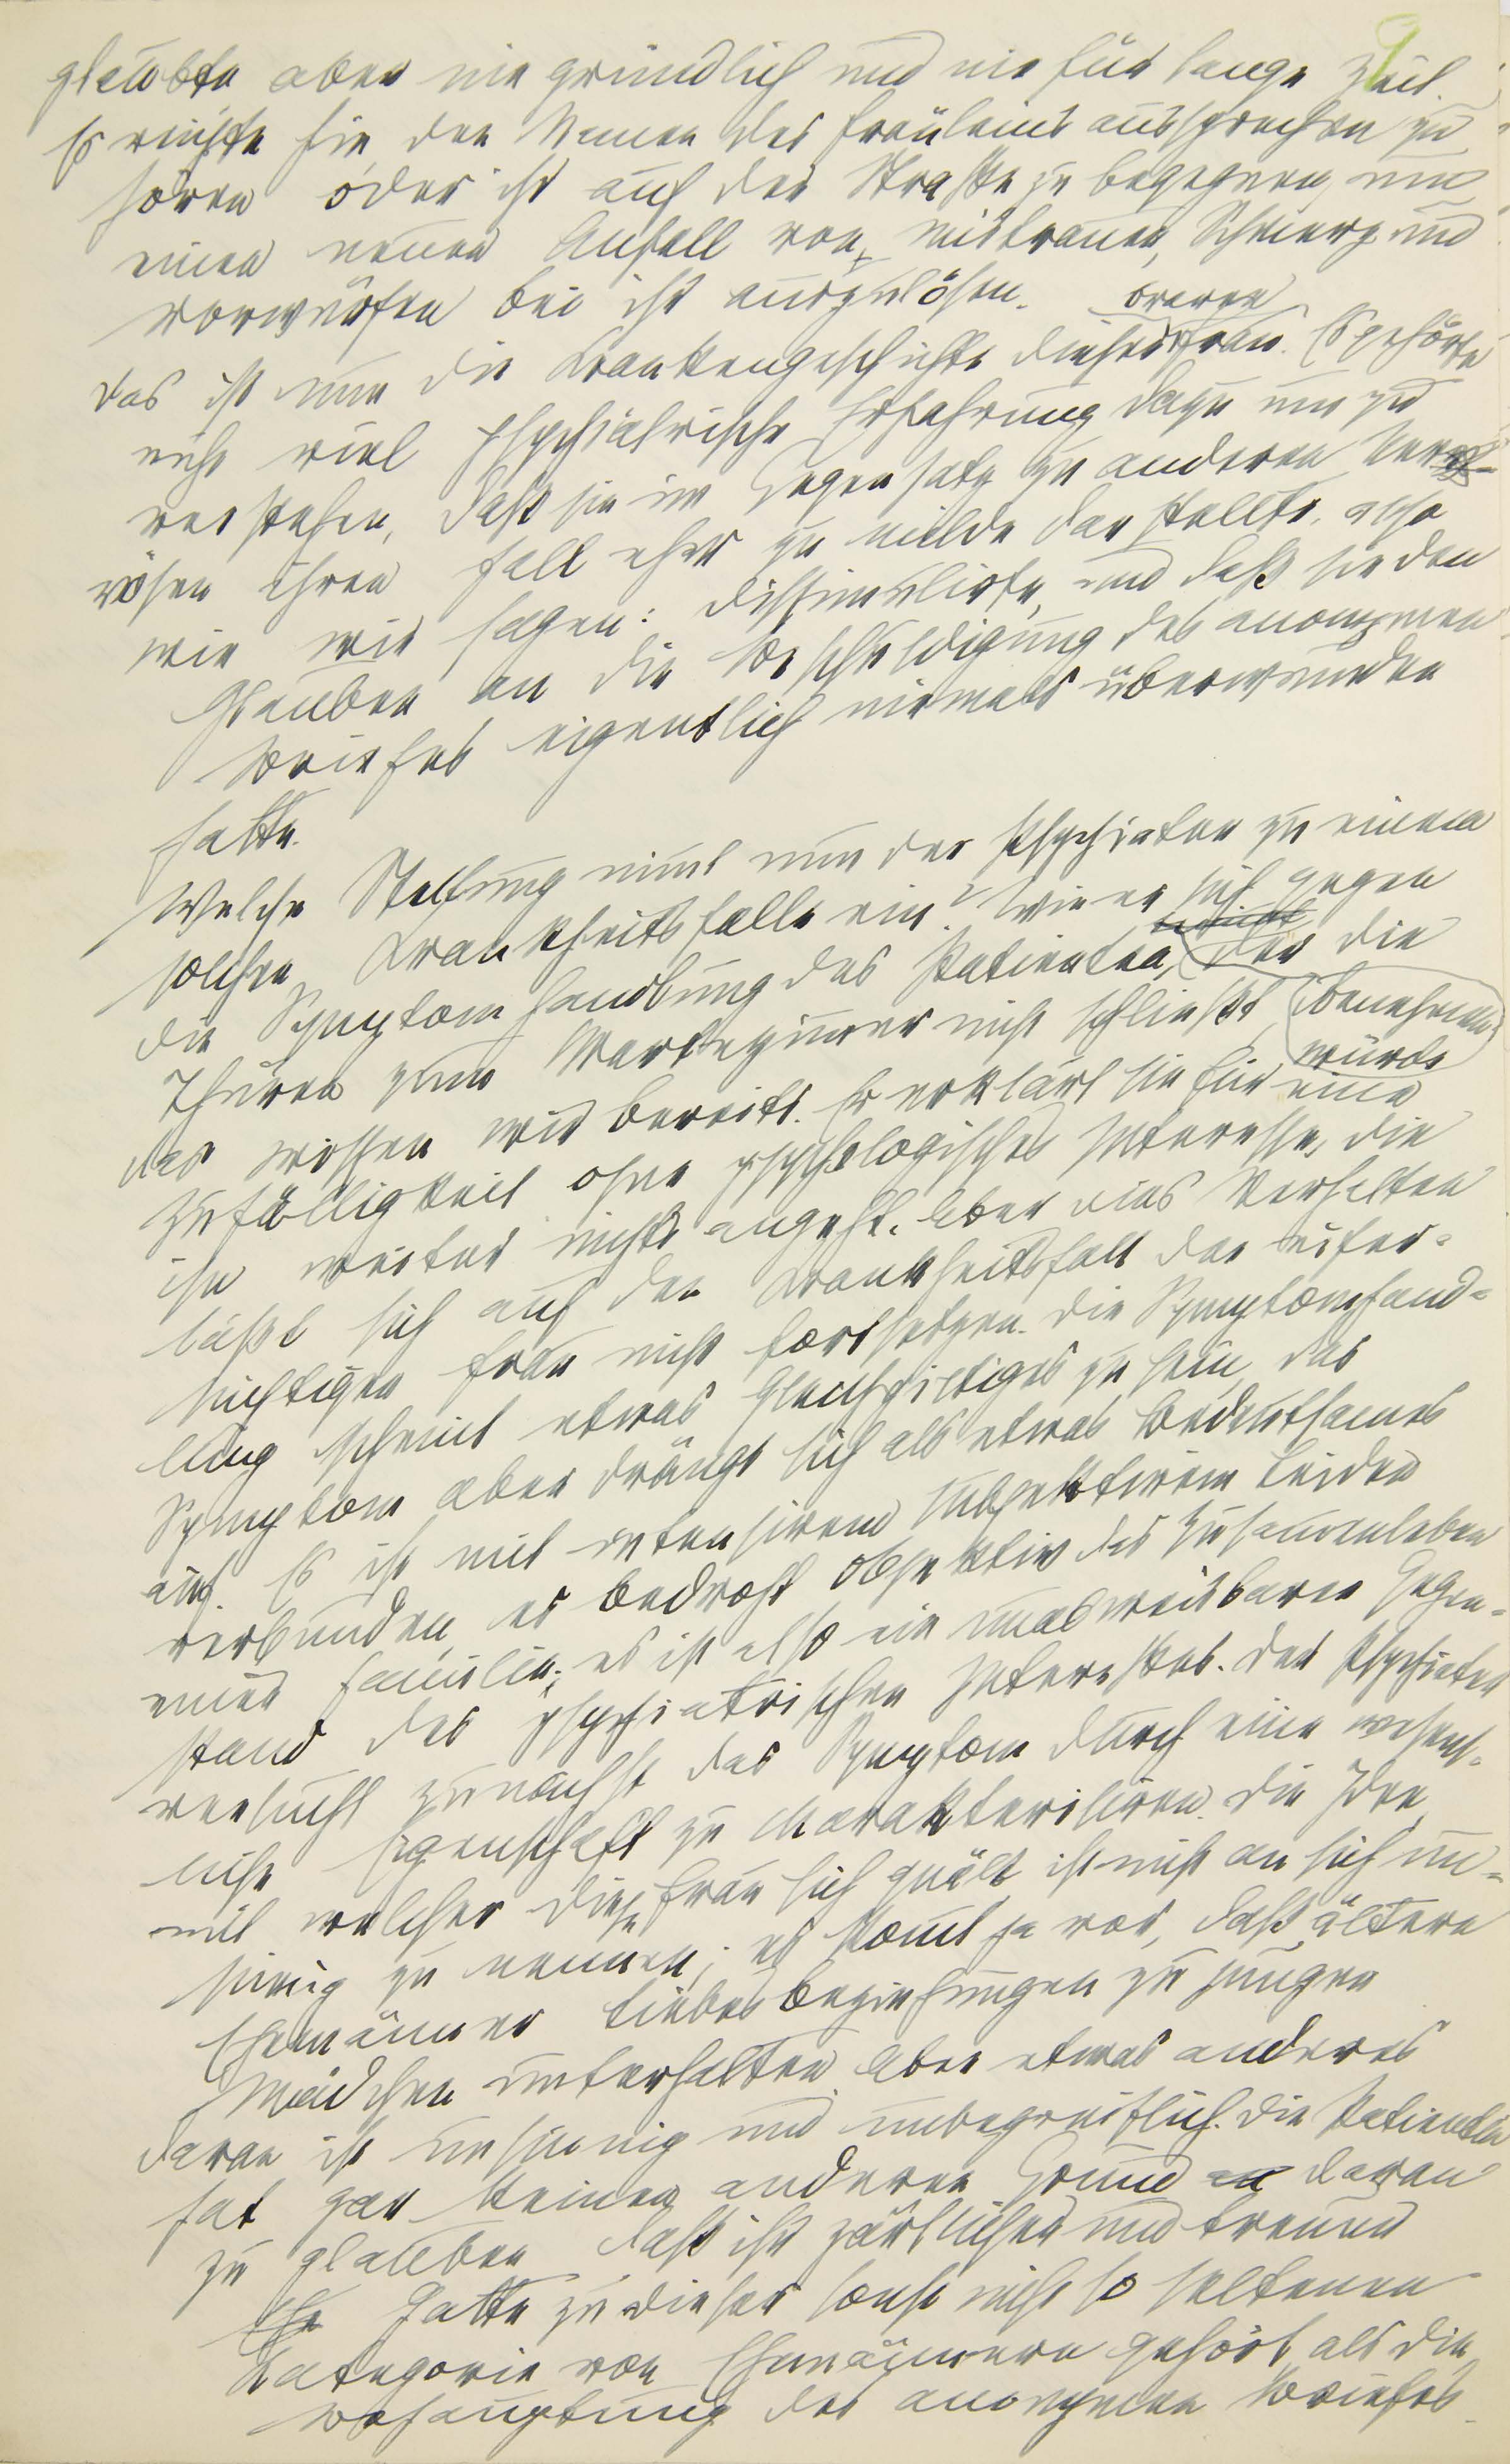 9
glaubte aber nie gründlich und nie für lange Zeit.
Es reichte hin, den Namen des Fräuleins aussprechen zu
hören oder ihr auf der Straße zu begegnen, um
einen neuen Anfall von Mistrauen, Schmerz und
Vorwürfen bei ihr auszulösen.
braven
Das ist nun die Krankengeschichte dieser Frau. Es gehörte
nicht viel psychiatrische Erfahrung dazu um zu
verstehen, daß sie im Gegensatz zu anderen Ner-
vösen ihren Fall eher zu milde darstellte, also
wie wir sagen: dissimulirte, und daß sie den
Glauben an die Beschuldigung des anonymen
Briefes eigentlich niemals überwunden
hatte.
Welche Stellung nimt nun der Psychiater zu einem
solchen Krankheitsfalle ein? Wie er sich gegen
die Symptomhandlung des Patienten, der die
Thüren zum Wartezimmer nicht schließt, benehmen
würde
das wissen wir bereits. Er erklärt sie für eine
Zufälligkeit ohne psychologisches Interesse, die
ihn weiter nichts angeht. Aber dies Verhalten
läßt sich auf den Krankheitsfall der eifer-
süchtigen Frau nicht fortsetzen. Die Symptomhand-
lung scheint etwas Gleichgiltiges zu sein, das
Symptom aber drängt sich als etwas Bedeutsames
auf. Es ist mit intensivem subjektivem Leiden
verbunden, es bedroht objektiv das Zusammenleben
einer Familie; es ist also ein unabweisbarer Gegen-
stand des psychiatrischen Interesses. Der Psychiater
versucht zunächst das Symptom durch eine wesent-
liche Eigenschaft zu charakterisiren. Die Idee,
mit welcher diese Frau sich quält ist nicht an sich un-
sinnig zu nennen; es komt ja vor, daß ältere
Ehemänner Liebesbeziehungen zu jungen
Mädchen unterhalten. Aber etwas anderes
daran ist unsinnig und unbegreiflich. Die Patientin
hat gar keinen anderen Grund daran
zu glauben, daß ihr zärtlicher und treuer
Gatte zu dieser sonst nicht so seltenen
Kategorie von Ehemännern gehört, als die
Behauptung des anonymen Briefes.